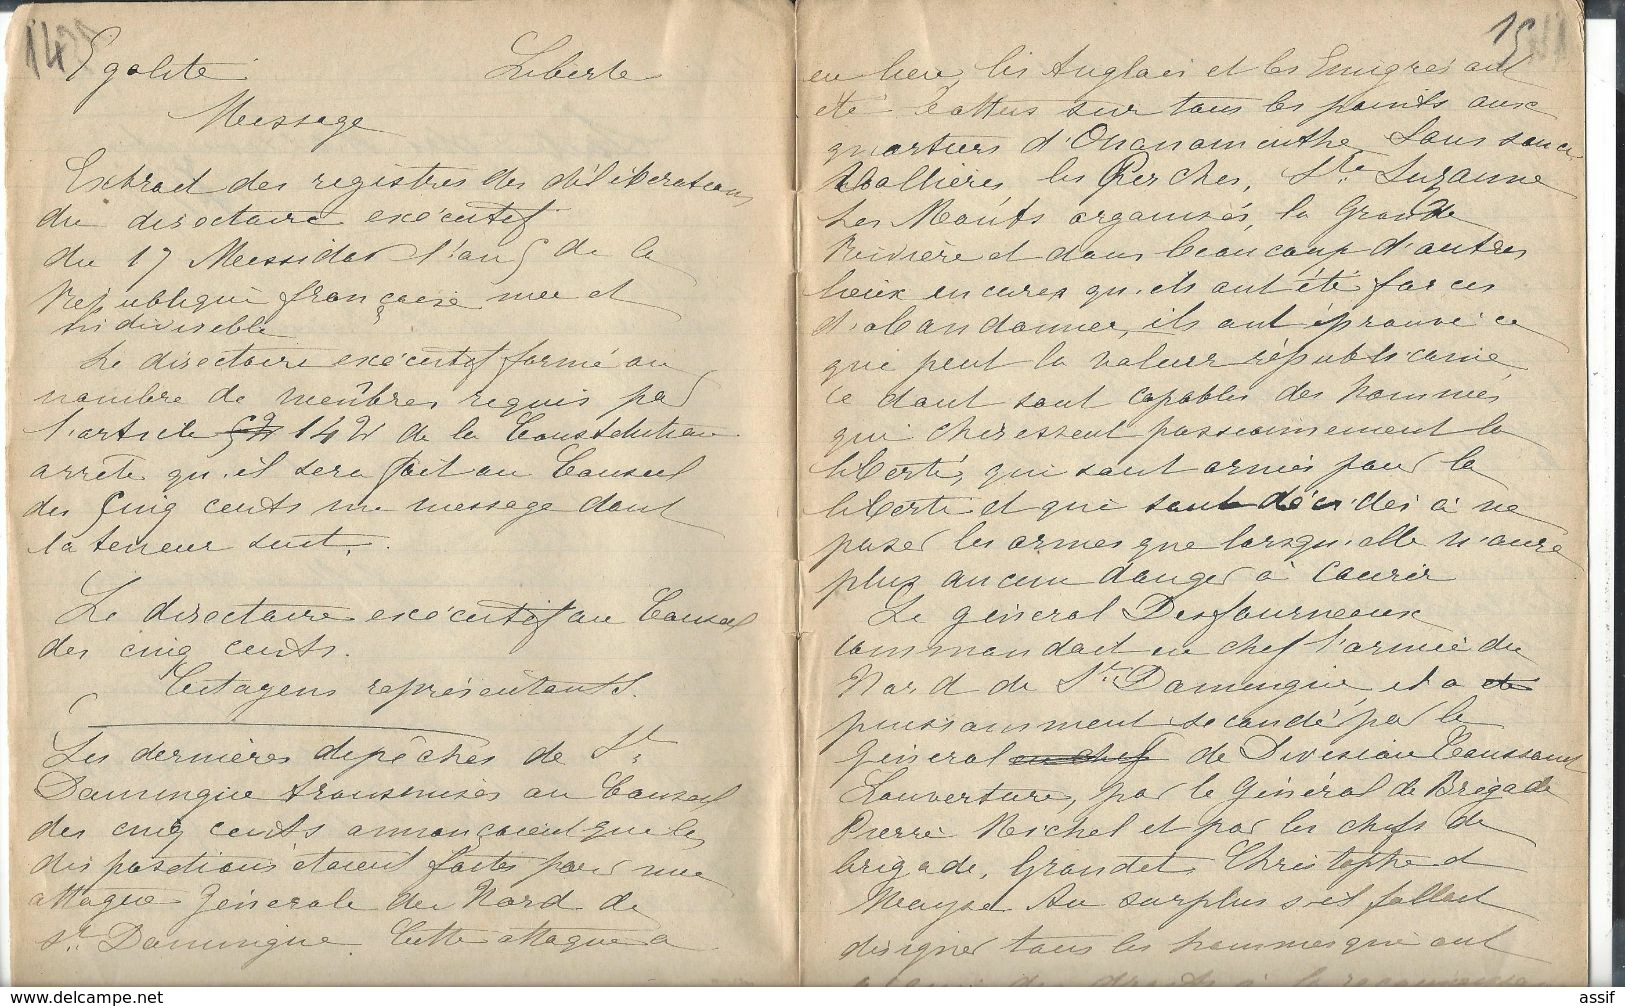 14
Egalité Liberté
Message
Extrait des registres des délibérations
du directoire exécutif
du 17 Messidor l'an 5 de la
République française une et
indivisible
Le directoire exécutif formé au
nombre de membres requis par
l'article 142 de la Constitution
arrête qu'il sera fait au Conseil
des Cinq cents un message dont
la teneur suit.
Le directoire exécutif au Conseil
des cinq cents.
Citoyens représentants.
Les dernières depêches de St
Domingue transmises au Conseil
des cinq cents annonçaient que les
dispositions étaient faites pour une
attaque Générale du Nord de
St Domingue. Cette attaque a
15
eu lieu, les Anglais et les Emigrés ont
été battus sur tous les points aux
quartiers d'Ouanaminthe Sans souci
Vallières les Perches, Ste Suzanne
Les organisés, la Grande
Rivière et dans beaucoup d'autres
lieux encore qu'ils ont été forcés
d'abandonner, ils ont éprouvé ce
que peut la valeur républicaine,
ce dont sont capables des hommes
qui chérissent passionnement la
liberté, qui sont armés pour la
liberté et qui sont décidés à ne
poser les armes que lorsqu'elle n'aura
plus aucun danger à courir
Le général Desfourneaux
commandait en chef l'armée du
Nord de St Domingue, et a été
puissamment secondé par le
Général en chef de Division Toussaint
Louverture, par le Général de Brigade
Pierre Michel et par les chefs de
brigade, Grandet Christophe et
Moyse Au surplus s'il fallait
désigner tous les hommes qui ont
www.delcampe.net
assif